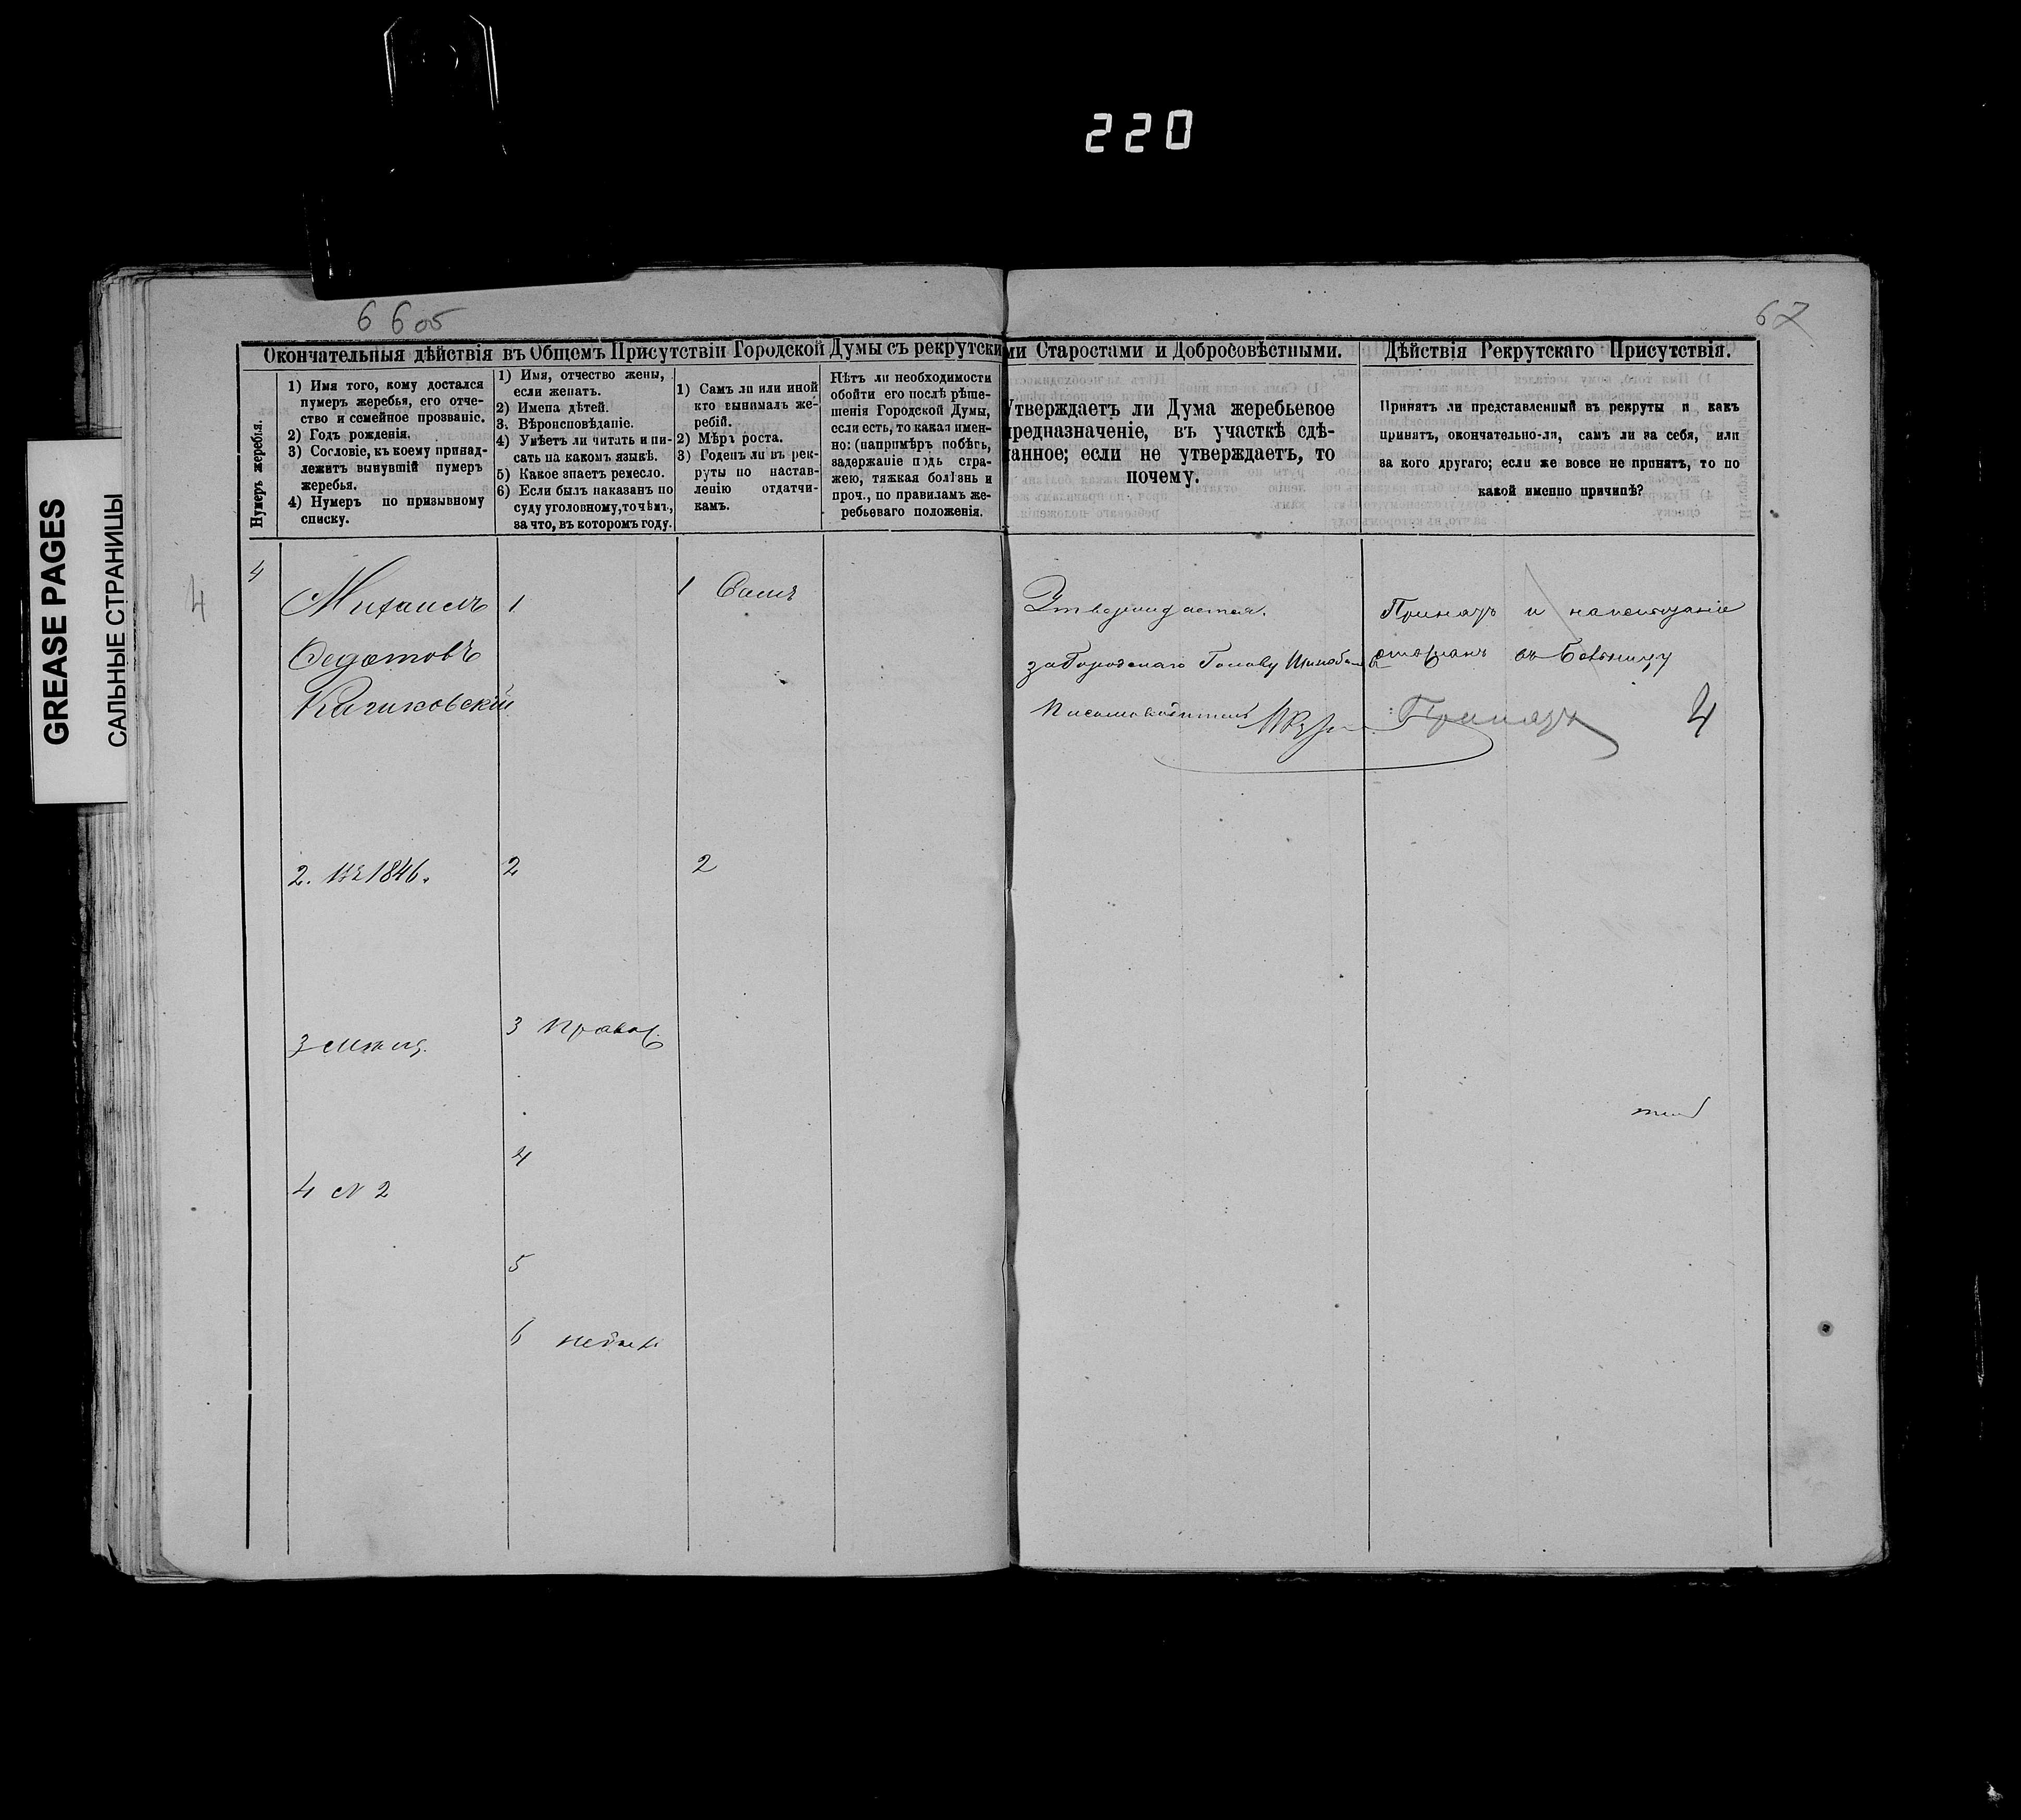 220
GREASE PAGES
САЛЬНЫЕ СТРАНИЦЫ
66 об
67
Окончательныя дѣйствія въ Общемъ Присутствіи Городской Думы съ рекрутскими Старостами и Добросовѣстными.
Дѣйствія Рекрутскаго Присутствія.
Нумеръ жеребья.
1) Имя того, кому достался
нумеръ жеребья, его отче-
ство и семейное прозваніе.
2) Годъ рожденія.
3) Сословіе, къ коему принад-
лежитъ вынувшій нумеръ
жеребья.
4) Нумеръ по призывному
списку.
1) Имя, отчество жены,
если женатъ.
2) Имена дѣтей.
3) Вѣроисповѣданіе.
4) Умѣетъ ли читать и пи-
сать на какомъ языкѣ.
5) Какое знаетъ ремесло.
6) Если былъ наказанъ по
суду уголовному, то чѣмъ,
за что, въ которомъ году.
1) Самъ ли или иной
кто вынималъ же-
ребій.
2) Мѣра роста.
3) Годенъ ли въ рек-
руты по настав-
ленію отдатчи-
камъ.
Нѣтъ ли необходимости
обойти его послѣ рѣше-
шенія Городской Думы,
если есть, то какая имен-
но: (напримѣръ побѣгъ,
задержаніе подъ стра-
жею, тяжкая болѣзнь и
проч., по правиламъ же-
ребьеваго положенія.
Утверждаетъ ли Дума жеребьевое
предназначеніе, въ участкѣ сдѣ-
ланное; если не утверждаетъ, то
почему.
Принятъ ли представленный въ рекруты и какъ
принятъ, окончательно-ли, самъ ли за себя, или
за кого другаго; если же вовсе не принятъ, то по
какой именно причинѣ?
4
4
Михаилъ
Федотовъ
1
1 Самъ
Утверждается.
за Городскаго Голову
Письмоводитель
въ Больницу
4
2. Въ 1846.
2
2
3
3 Правос.
4
4 № 2
5
6